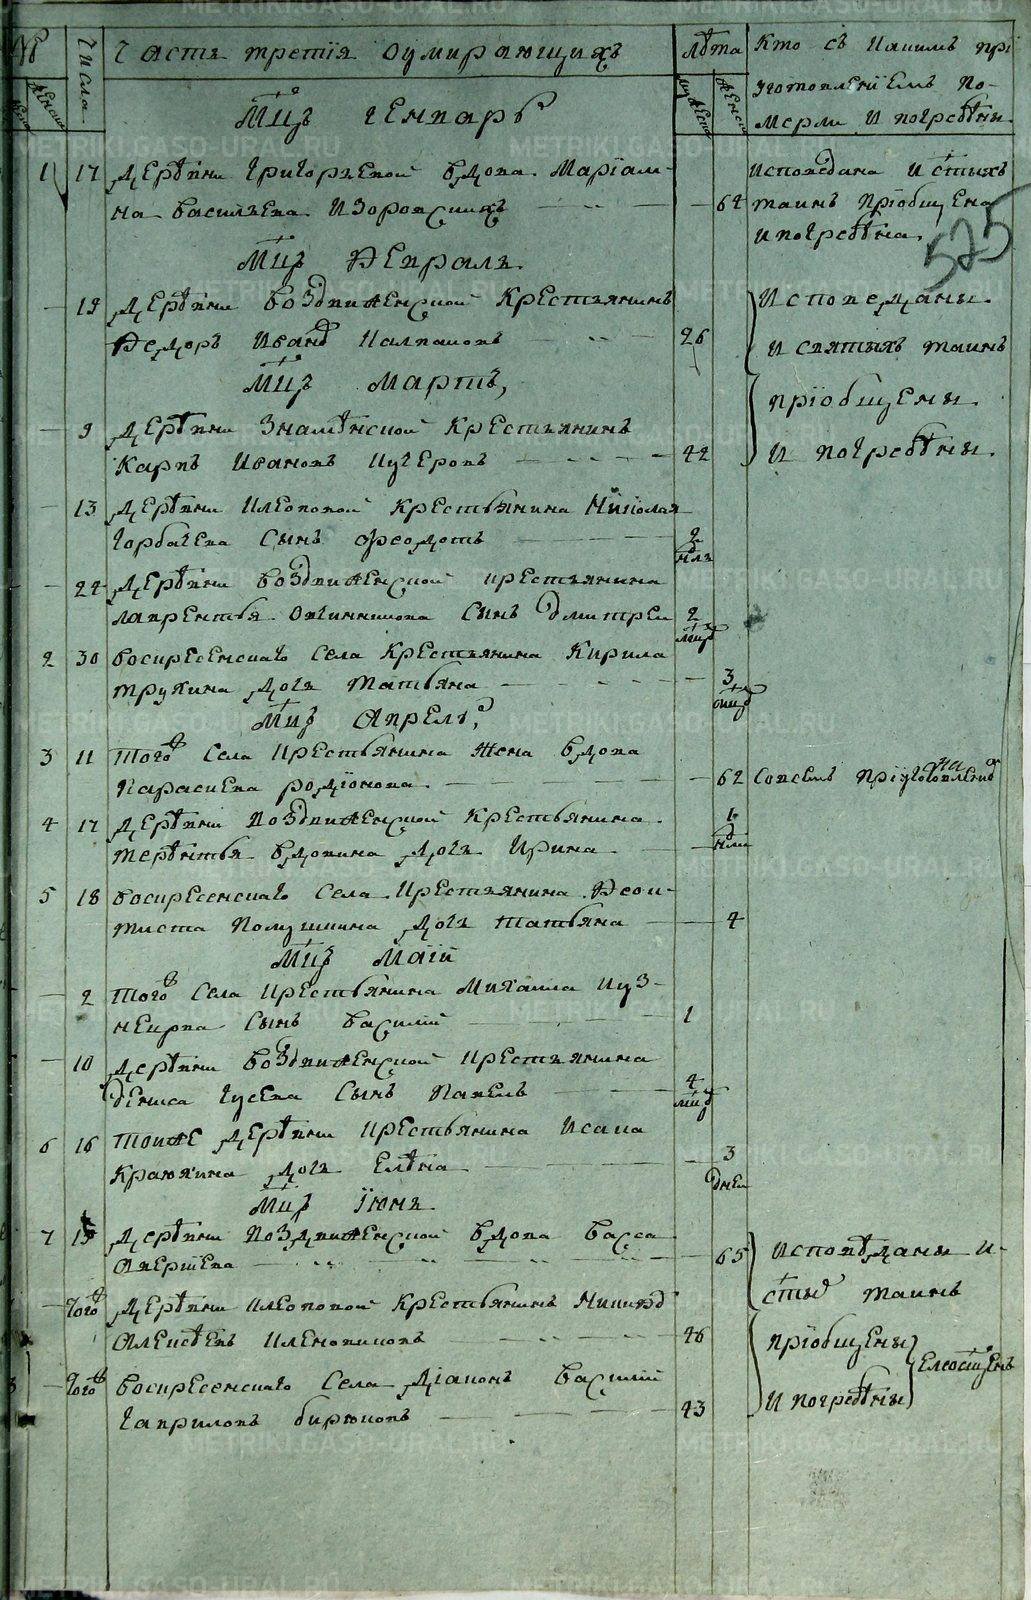 № Числа Часть третія оумирающихъ Лѣта Кто съ какимъ прі
уготовленіемъ по-
мерли и погребены.
Мцъ Генварь
1 17 Деревни Григорьевой вдова Маріам-
на Васильева Изоровскихъ 64
исповедана и стыхъ
таинъ пріобщена
и погребѣна.
525
Мцъ Февраль
19 Деревни Воздвиженской крестьянинъ
Федоръ Иванов Калпаковъ 26
Исповеданы
и святыхъ таинъ
Мцъ Мартъ,
9 Деревни Знамѣнской крестьянинъ
Карпъ Ивановъ Кучеровъ 42
пріобщены
и погребѣны.
13 Деревни Клеоповой крестьянина Николая
Горбачева сынъ Феодотъ 2 нлъ
24 Деревни Воздвиженской крестьянина
Лаврентья Овчинникова сынъ Дмитреи 2 мцъ
2 30 Воскресенскаго села крестьянина Кирила
Трухина дочь Татьяна 3 мцъ
Мцъ Апрель,
3 11 Того села крестьянина жена вдова
Параскева Родіонова 62 совсемъ пріуготовлена
4 17 Деревни Воздвиженской крестьянина
Терентья Вдовина дочь Ирина 1 нли
5 18 Воскресенскаго села крестьянина Феок-
тиста Полушкина дочь Татьяна 4
Мцъ Маій
2 Того села крестьянина Михаила Куз-
нецова сынъ Василій 1
10 Деревни Воздвиженской крестьянина
Дениса Гусева сынъ Павелъ 4 мцъ
6 16 Тояже деревни крестьянина Исака
Краюхина дочь Елена 3 дней
Мцъ Іюнь
7 15 Деревни Воздвиженской вдова Васса
Авершева 65
исповѣданы и
стых таинъ
Того Деревни Клеоповой крестьянинъ Никифо
Алексеевъ Клеповиковъ 46
пріобщены
Того Воскресенскаго села діаконъ Василій
Гавриловъ Бирюковъ 43
и погребѣны
елеосщенъ